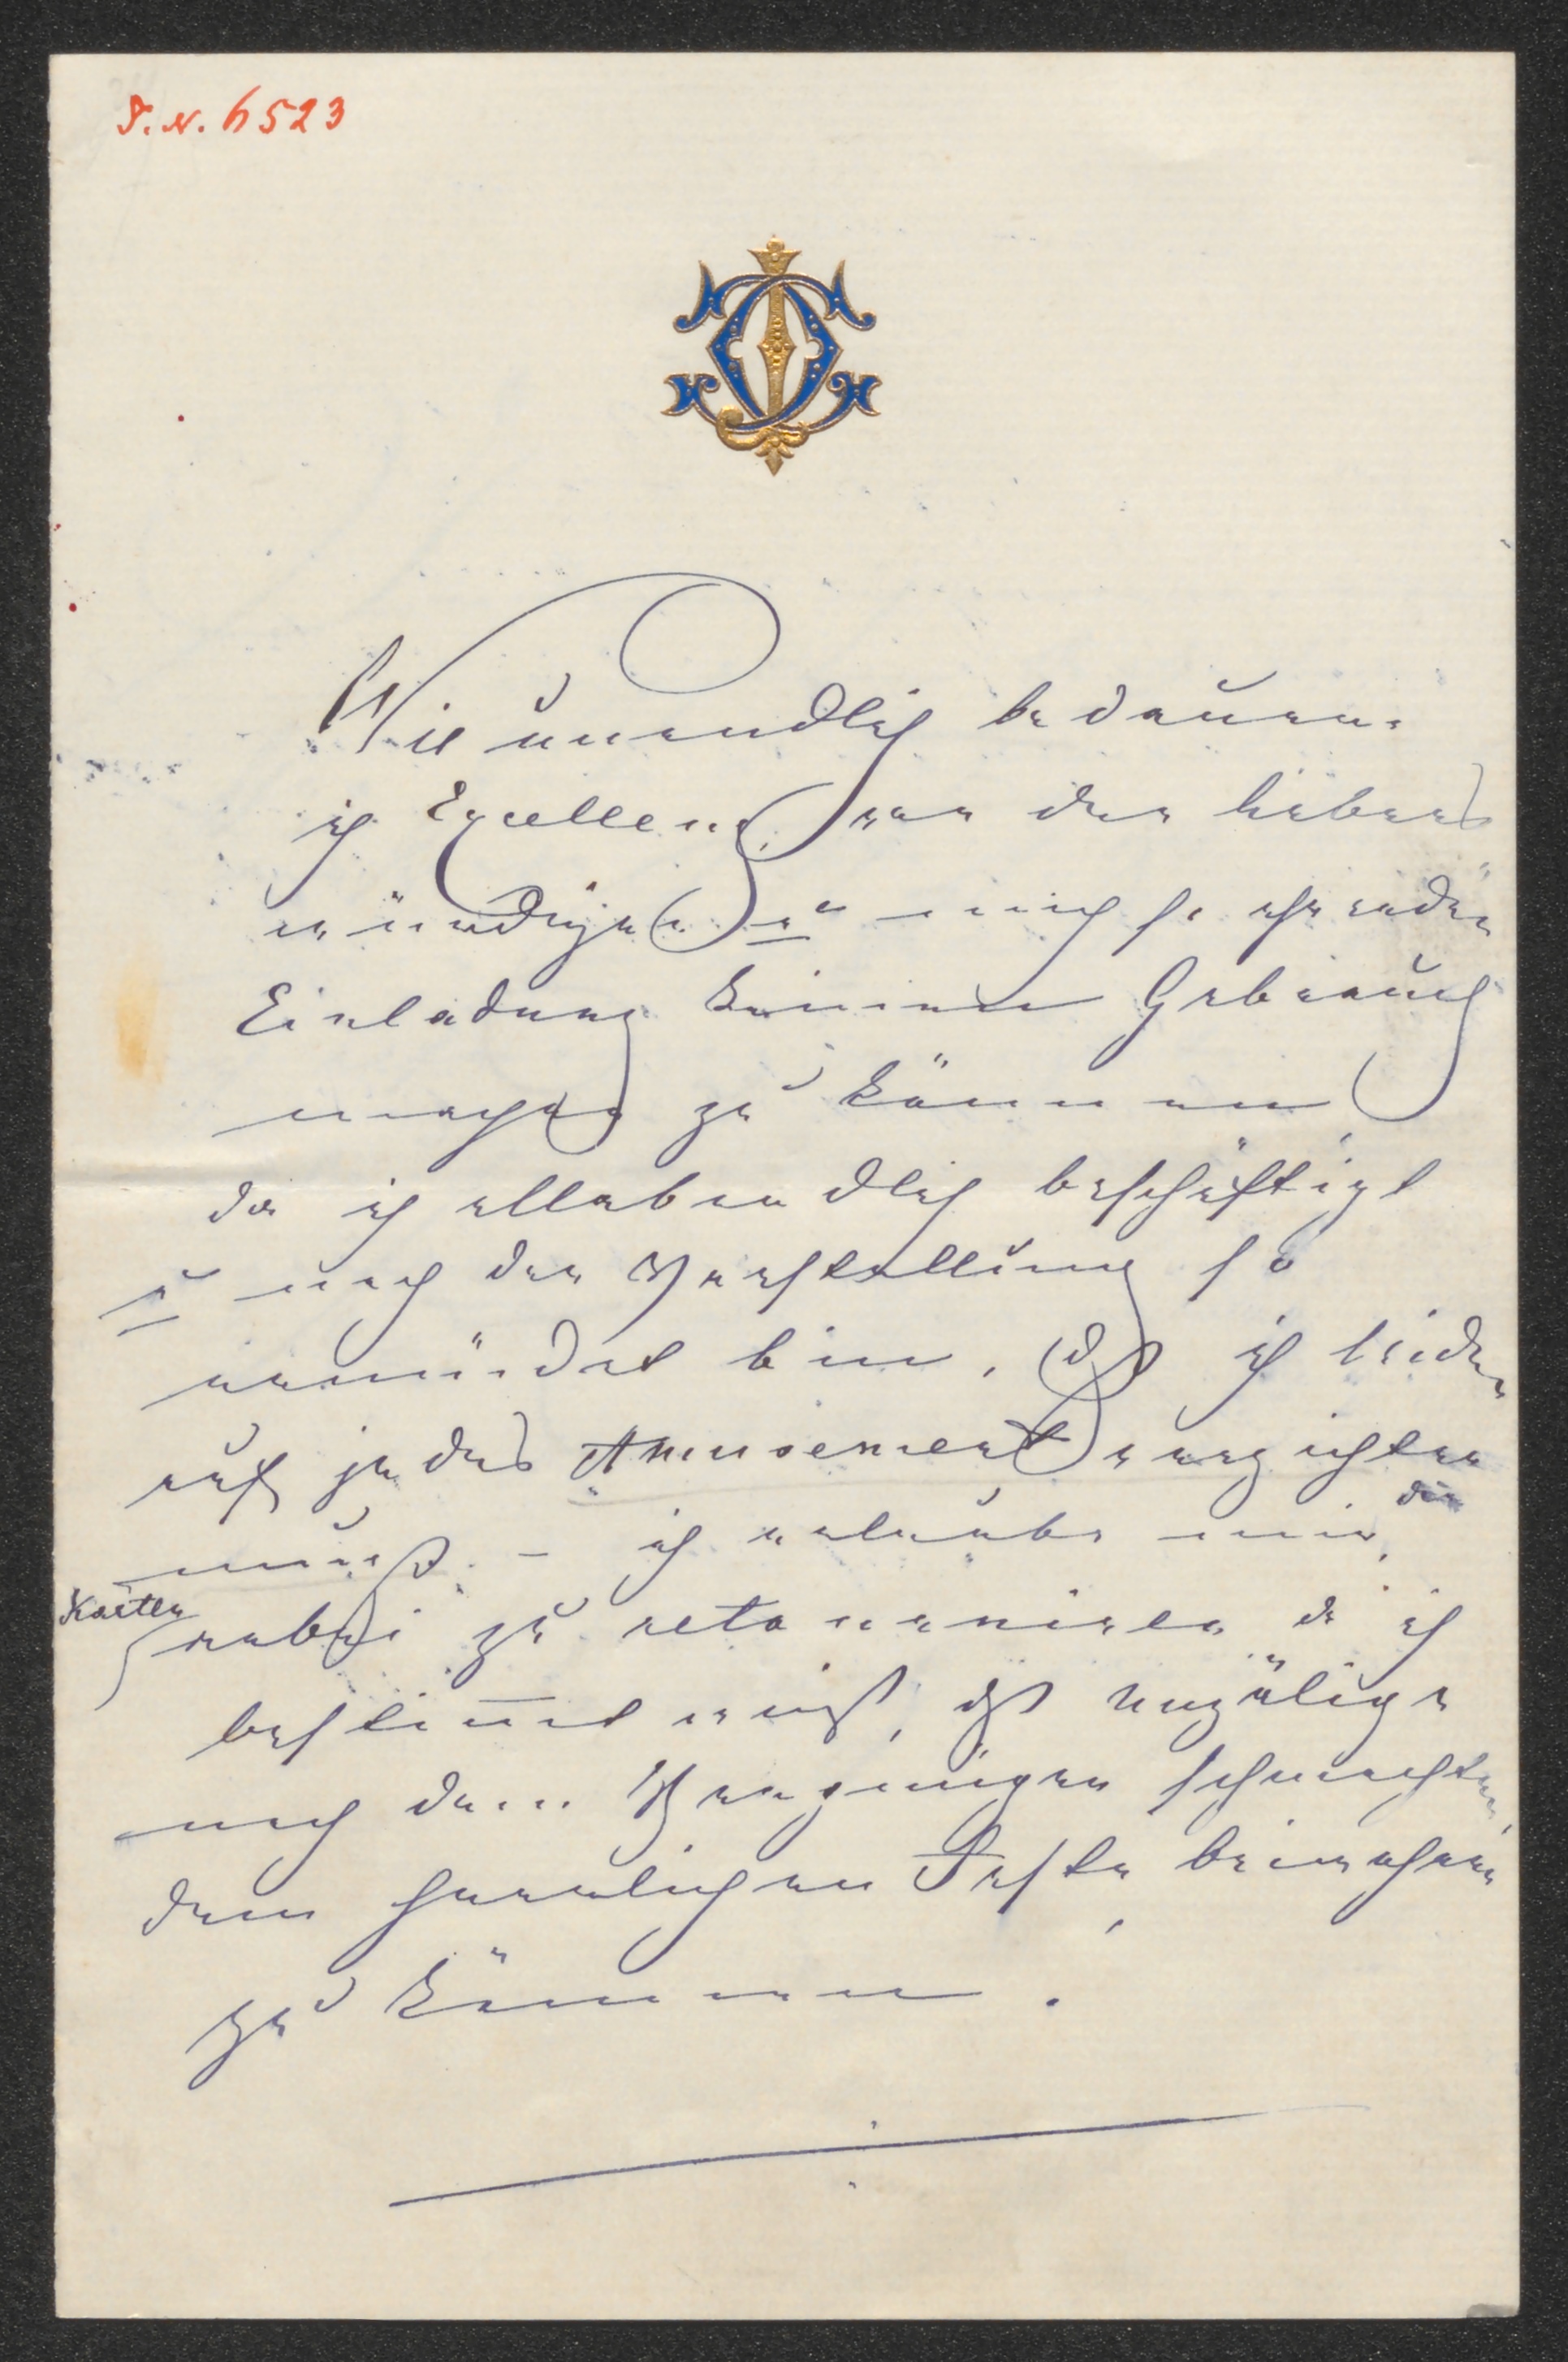 I. N. 6523
Wie unendlich bedaure
ich Excellenz von der liebens
würdigen u mich so ehrenden
Einladung keinen Gebrauch
machen zu können
da ich allabendlich beschäftigt
u nach der Vorstellung so
ermüdet bin, dß ich leider
auf jedes Amusement verzichten
muß. – ich erlaube mir, die
Karten
anbei zu retourniren da ich
bestimt weiß, dß unzälige
nach dem Vergnügen schmachten,
dem herrlichen Feste beiwohnen
zu können.